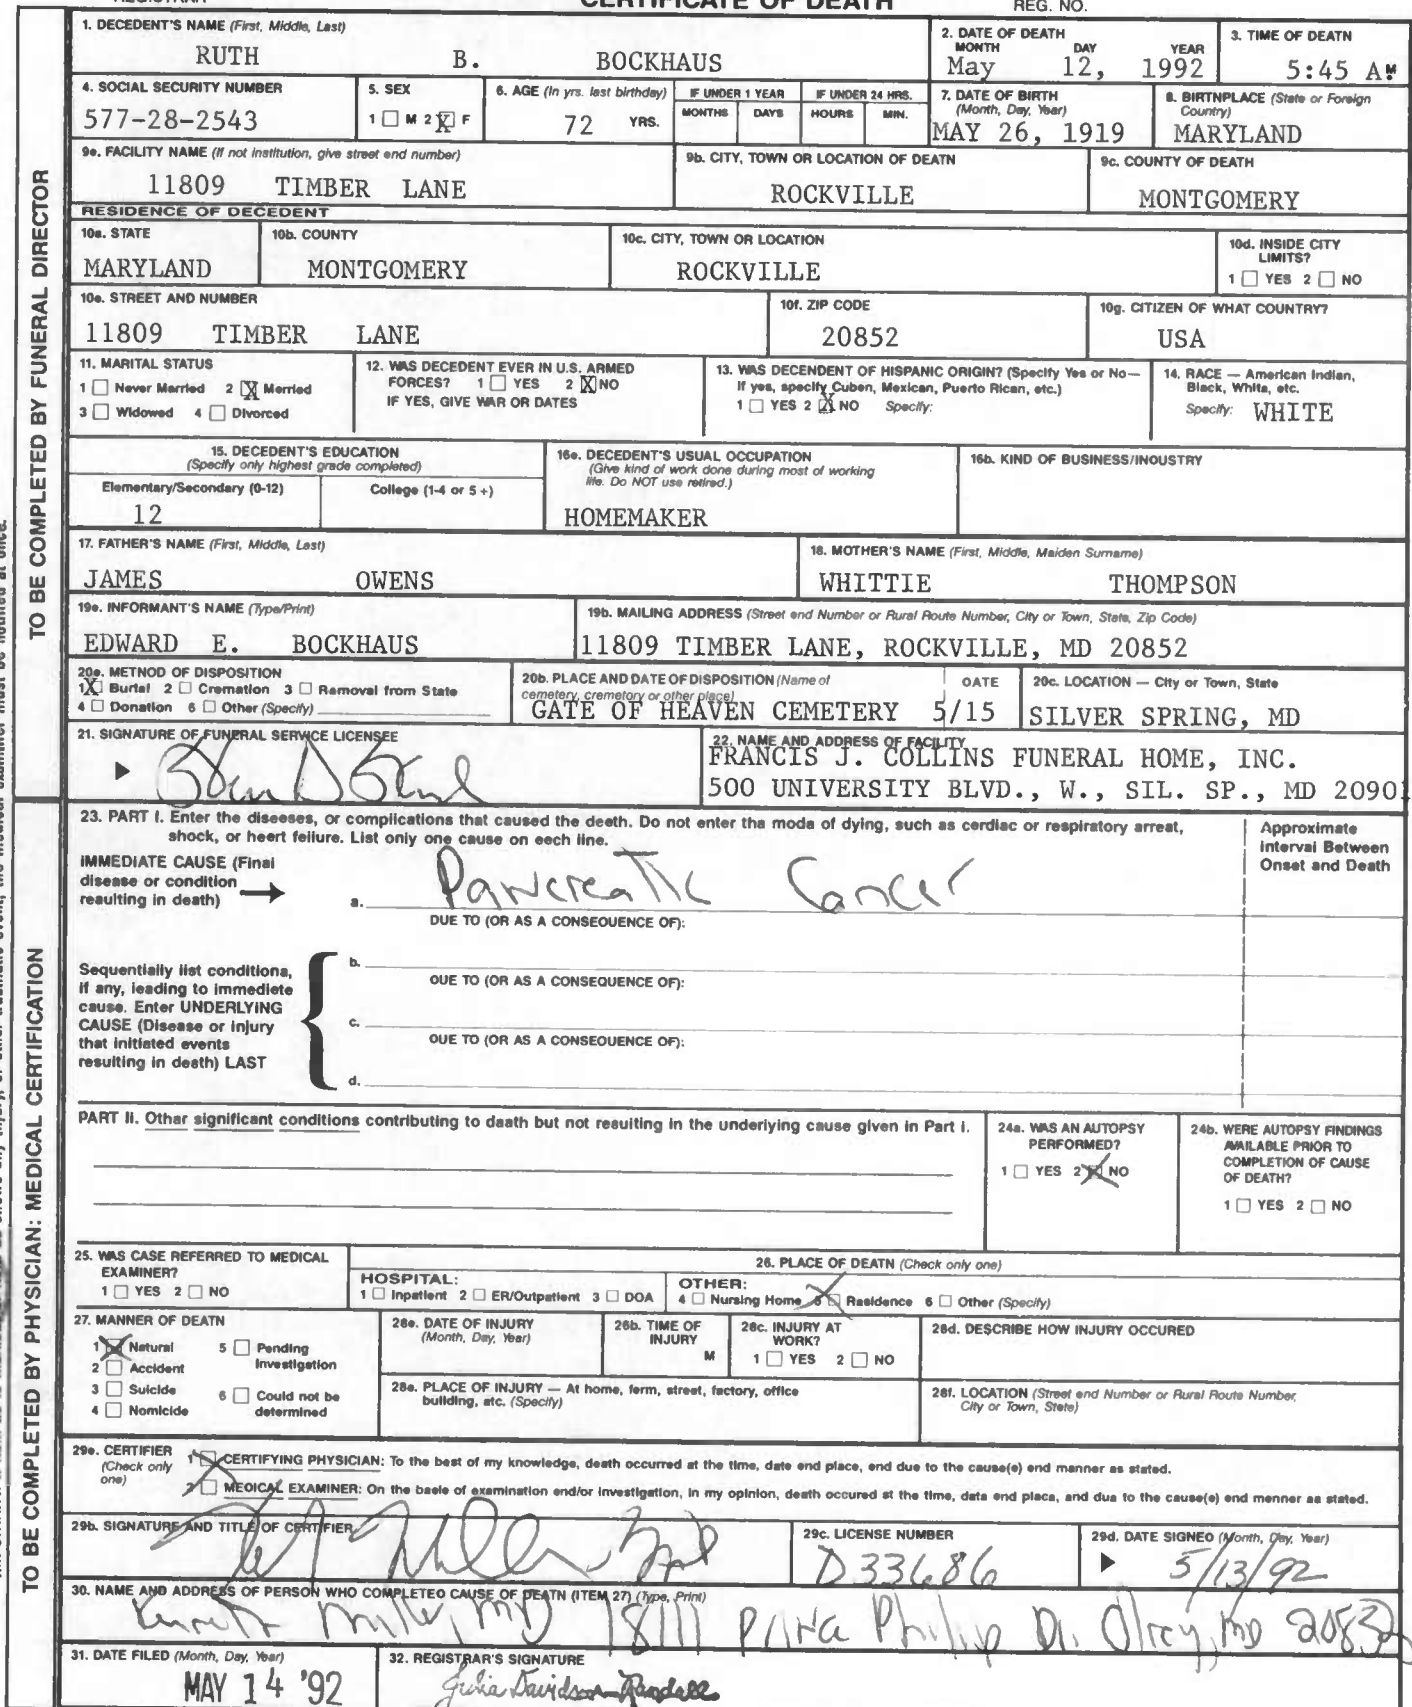 CERTIFICATE OF DEATH
REG. NO.
1. DECEDENT'S NAME (First, Middle, Last)
RUTH B. BOCKHAUS
2. DATE OF DEATH
MONTH DAY YEAR
May 12, 1992
3. TIME OF DEATH
5:45 AM
4. SOCIAL SECURITY NUMBER
577-28-2543
5. SEX
1 ☐ M 2 ☒ F
6. AGE (In yrs. last birthday)
72 YRS.
IF UNDER 1 YEAR
MONTHS DAYS
IF UNDER 24 HRS.
HOURS MIN.
7. DATE OF BIRTH
(Month, Day, Year)
MAY 26, 1919
8. BIRTHPLACE (State or Foreign
Country)
MARYLAND
9a. FACILITY NAME (If not institution, give street and number)
11809 TIMBER LANE
9b. CITY, TOWN OR LOCATION OF DEATH
ROCKVILLE
9c. COUNTY OF DEATH
MONTGOMERY
RESIDENCE OF DECEDENT
10a. STATE
MARYLAND
10b. COUNTY
MONTGOMERY
10c. CITY, TOWN OR LOCATION
ROCKVILLE
10d. INSIDE CITY
LIMITS?
1 ☐ YES 2 ☐ NO
10e. STREET AND NUMBER
11809 TIMBER LANE
10f. ZIP CODE
20852
10g. CITIZEN OF WHAT COUNTRY?
USA
11. MARITAL STATUS
1 ☐ Never Married 2 ☒ Married
3 ☐ Widowed 4 ☐ Divorced
12. WAS DECEDENT EVER IN U.S. ARMED
FORCES? 1 ☐ YES 2 ☒ NO
IF YES, GIVE WAR OR DATES
13. WAS DECENDENT OF HISPANIC ORIGIN? (Specify Yes or No—
If yes, specify Cuban, Mexican, Puerto Rican, etc.)
1 ☐ YES 2 ☒ NO Specify:
14. RACE — American Indian,
Black, White, etc.
Specify: WHITE
15. DECEDENT'S EDUCATION
(Specify only highest grade completed)
Elementary/Secondary (0-12) College (1-4 or 5 +)
12
16a. DECEDENT'S USUAL OCCUPATION
(Give kind of work done during most of working
life. Do NOT use retired.)
HOMEMAKER
16b. KIND OF BUSINESS/INDUSTRY
17. FATHER'S NAME (First, Middle, Last)
JAMES OWENS
18. MOTHER'S NAME (First, Middle, Maiden Surname)
WHITTIE THOMPSON
19a. INFORMANT'S NAME (Type/Print)
EDWARD E. BOCKHAUS
19b. MAILING ADDRESS (Street and Number or Rural Route Number, City or Town, State, Zip Code)
11809 TIMBER LANE, ROCKVILLE, MD 20852
20a. METHOD OF DISPOSITION
1 ☒ Burial 2 ☐ Cremation 3 ☐ Removal from State
4 ☐ Donation 6 ☐ Other (Specify)
20b. PLACE AND DATE OF DISPOSITION (Name of
cemetery, crematory or other place) DATE
GATE OF HEAVEN CEMETERY 5/15
20c. LOCATION — City or Town, State
SILVER SPRING, MD
21. SIGNATURE OF FUNERAL SERVICE LICENSEE
22. NAME AND ADDRESS OF FACILITY
FRANCIS J. COLLINS FUNERAL HOME, INC.
500 UNIVERSITY BLVD., W., SIL. SP., MD 20901
TO BE COMPLETED BY FUNERAL DIRECTOR
23. PART I. Enter the diseases, or complications that caused the death. Do not enter the mode of dying, such as cardiac or respiratory arrest,
shock, or heart failure. List only one cause on each line.
Approximate
Interval Between
Onset and Death
IMMEDIATE CAUSE (Final
disease or condition
resulting in death)
a. Pancreatic Cancer
DUE TO (OR AS A CONSEQUENCE OF):
Sequentially list conditions,
if any, leading to immediate
cause. Enter UNDERLYING
CAUSE (Disease or injury
that initiated events
resulting in death) LAST
b.
DUE TO (OR AS A CONSEQUENCE OF):
c.
DUE TO (OR AS A CONSEQUENCE OF):
d.
PART II. Other significant conditions contributing to death but not resulting in the underlying cause given in Part I.
24a. WAS AN AUTOPSY
PERFORMED?
1 ☐ YES 2 ☒ NO
24b. WERE AUTOPSY FINDINGS
AVAILABLE PRIOR TO
COMPLETION OF CAUSE
OF DEATH?
1 ☐ YES 2 ☐ NO
25. WAS CASE REFERRED TO MEDICAL
EXAMINER?
1 ☐ YES 2 ☐ NO
26. PLACE OF DEATH (Check only one)
HOSPITAL:
1 ☐ Inpatient 2 ☐ ER/Outpatient 3 ☐ DOA
OTHER:
4 ☐ Nursing Home 5 ☒ Residence 6 ☐ Other (Specify)
27. MANNER OF DEATH
1 ☒ Natural 5 ☐ Pending
Investigation
2 ☐ Accident
3 ☐ Suicide 6 ☐ Could not be
determined
4 ☐ Homicide
28a. DATE OF INJURY
(Month, Day, Year)
28b. TIME OF
INJURY
M
28c. INJURY AT
WORK?
1 ☐ YES 2 ☐ NO
28d. DESCRIBE HOW INJURY OCCURED
28e. PLACE OF INJURY — At home, farm, street, factory, office
building, etc. (Specify)
28f. LOCATION (Street and Number or Rural Route Number,
City or Town, State)
29a. CERTIFIER
(Check only
one)
1 ☒ CERTIFYING PHYSICIAN: To the best of my knowledge, death occurred at the time, date and place, and due to the cause(s) and manner as stated.
2 ☐ MEDICAL EXAMINER: On the basis of examination and/or investigation, in my opinion, death occured at the time, date and place, and due to the cause(s) and manner as stated.
29b. SIGNATURE AND TITLE OF CERTIFIER
29c. LICENSE NUMBER
D33686
29d. DATE SIGNED (Month, Day, Year)
5/13/92
30. NAME AND ADDRESS OF PERSON WHO COMPLETED CAUSE OF DEATH (ITEM 27) (Type, Print)
Kenneth Miller, MD 18111 Prince Philip Dr. Olney, MD 20832
31. DATE FILED (Month, Day, Year)
MAY 14 '92
32. REGISTRAR'S SIGNATURE
Julia Davidson-Randall
TO BE COMPLETED BY PHYSICIAN: MEDICAL CERTIFICATION